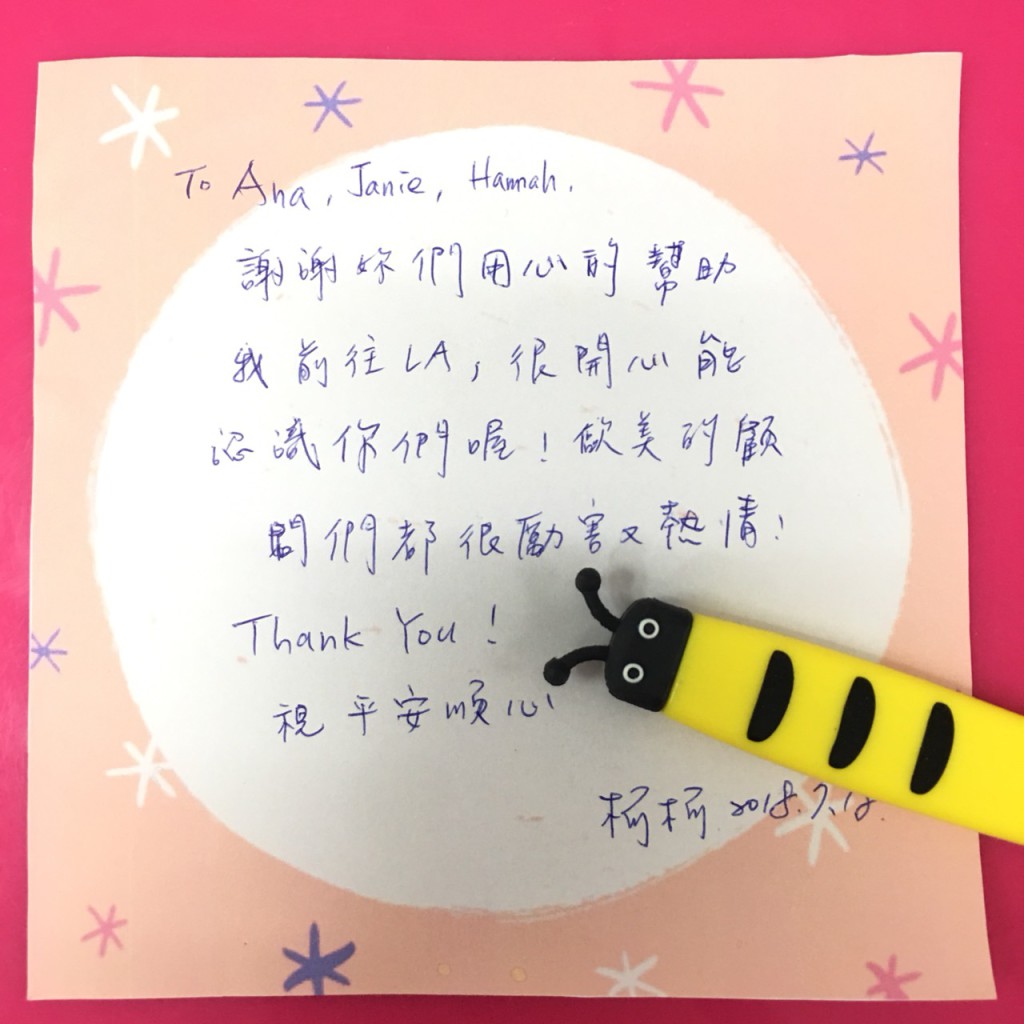 To Ana, Janie, Hannah.
謝謝妳們用心的幫助
我前往LA,很開心能
認識你們喔!做美的顧
問們都很勵害又熱情!
Thank You!
祝平安順心
柯柯 2018.7.18.